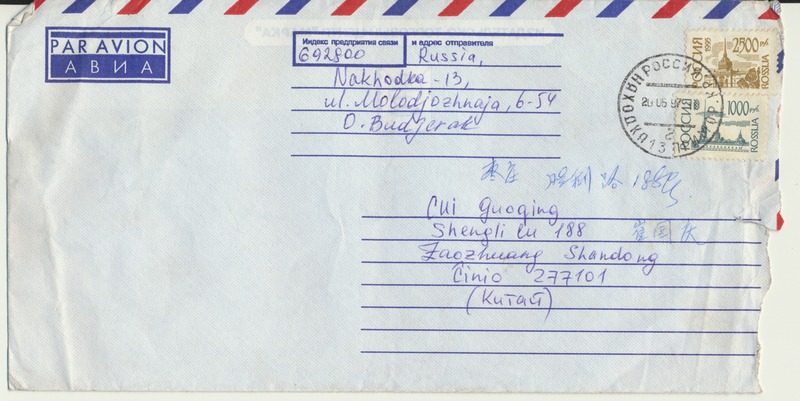 PAR AVION
АВИА
Индекс предприятия связи и адрес отправителя
692800 Russia,
Nakhodka-13,
ul. Molodjozhnaja, 6-54
O. Budjerak
РОССИЯ 1995 2500 РУБ. ROSSIJA
РОССИЯ 1000 РУБ. ROSSIJA
РОССИЯ
枣庄 胜利路188号
Cui Guoqing
Shengli Lu 188 崔国庆
Zaozhuang Shandong
Cinio 277101
(Китай)